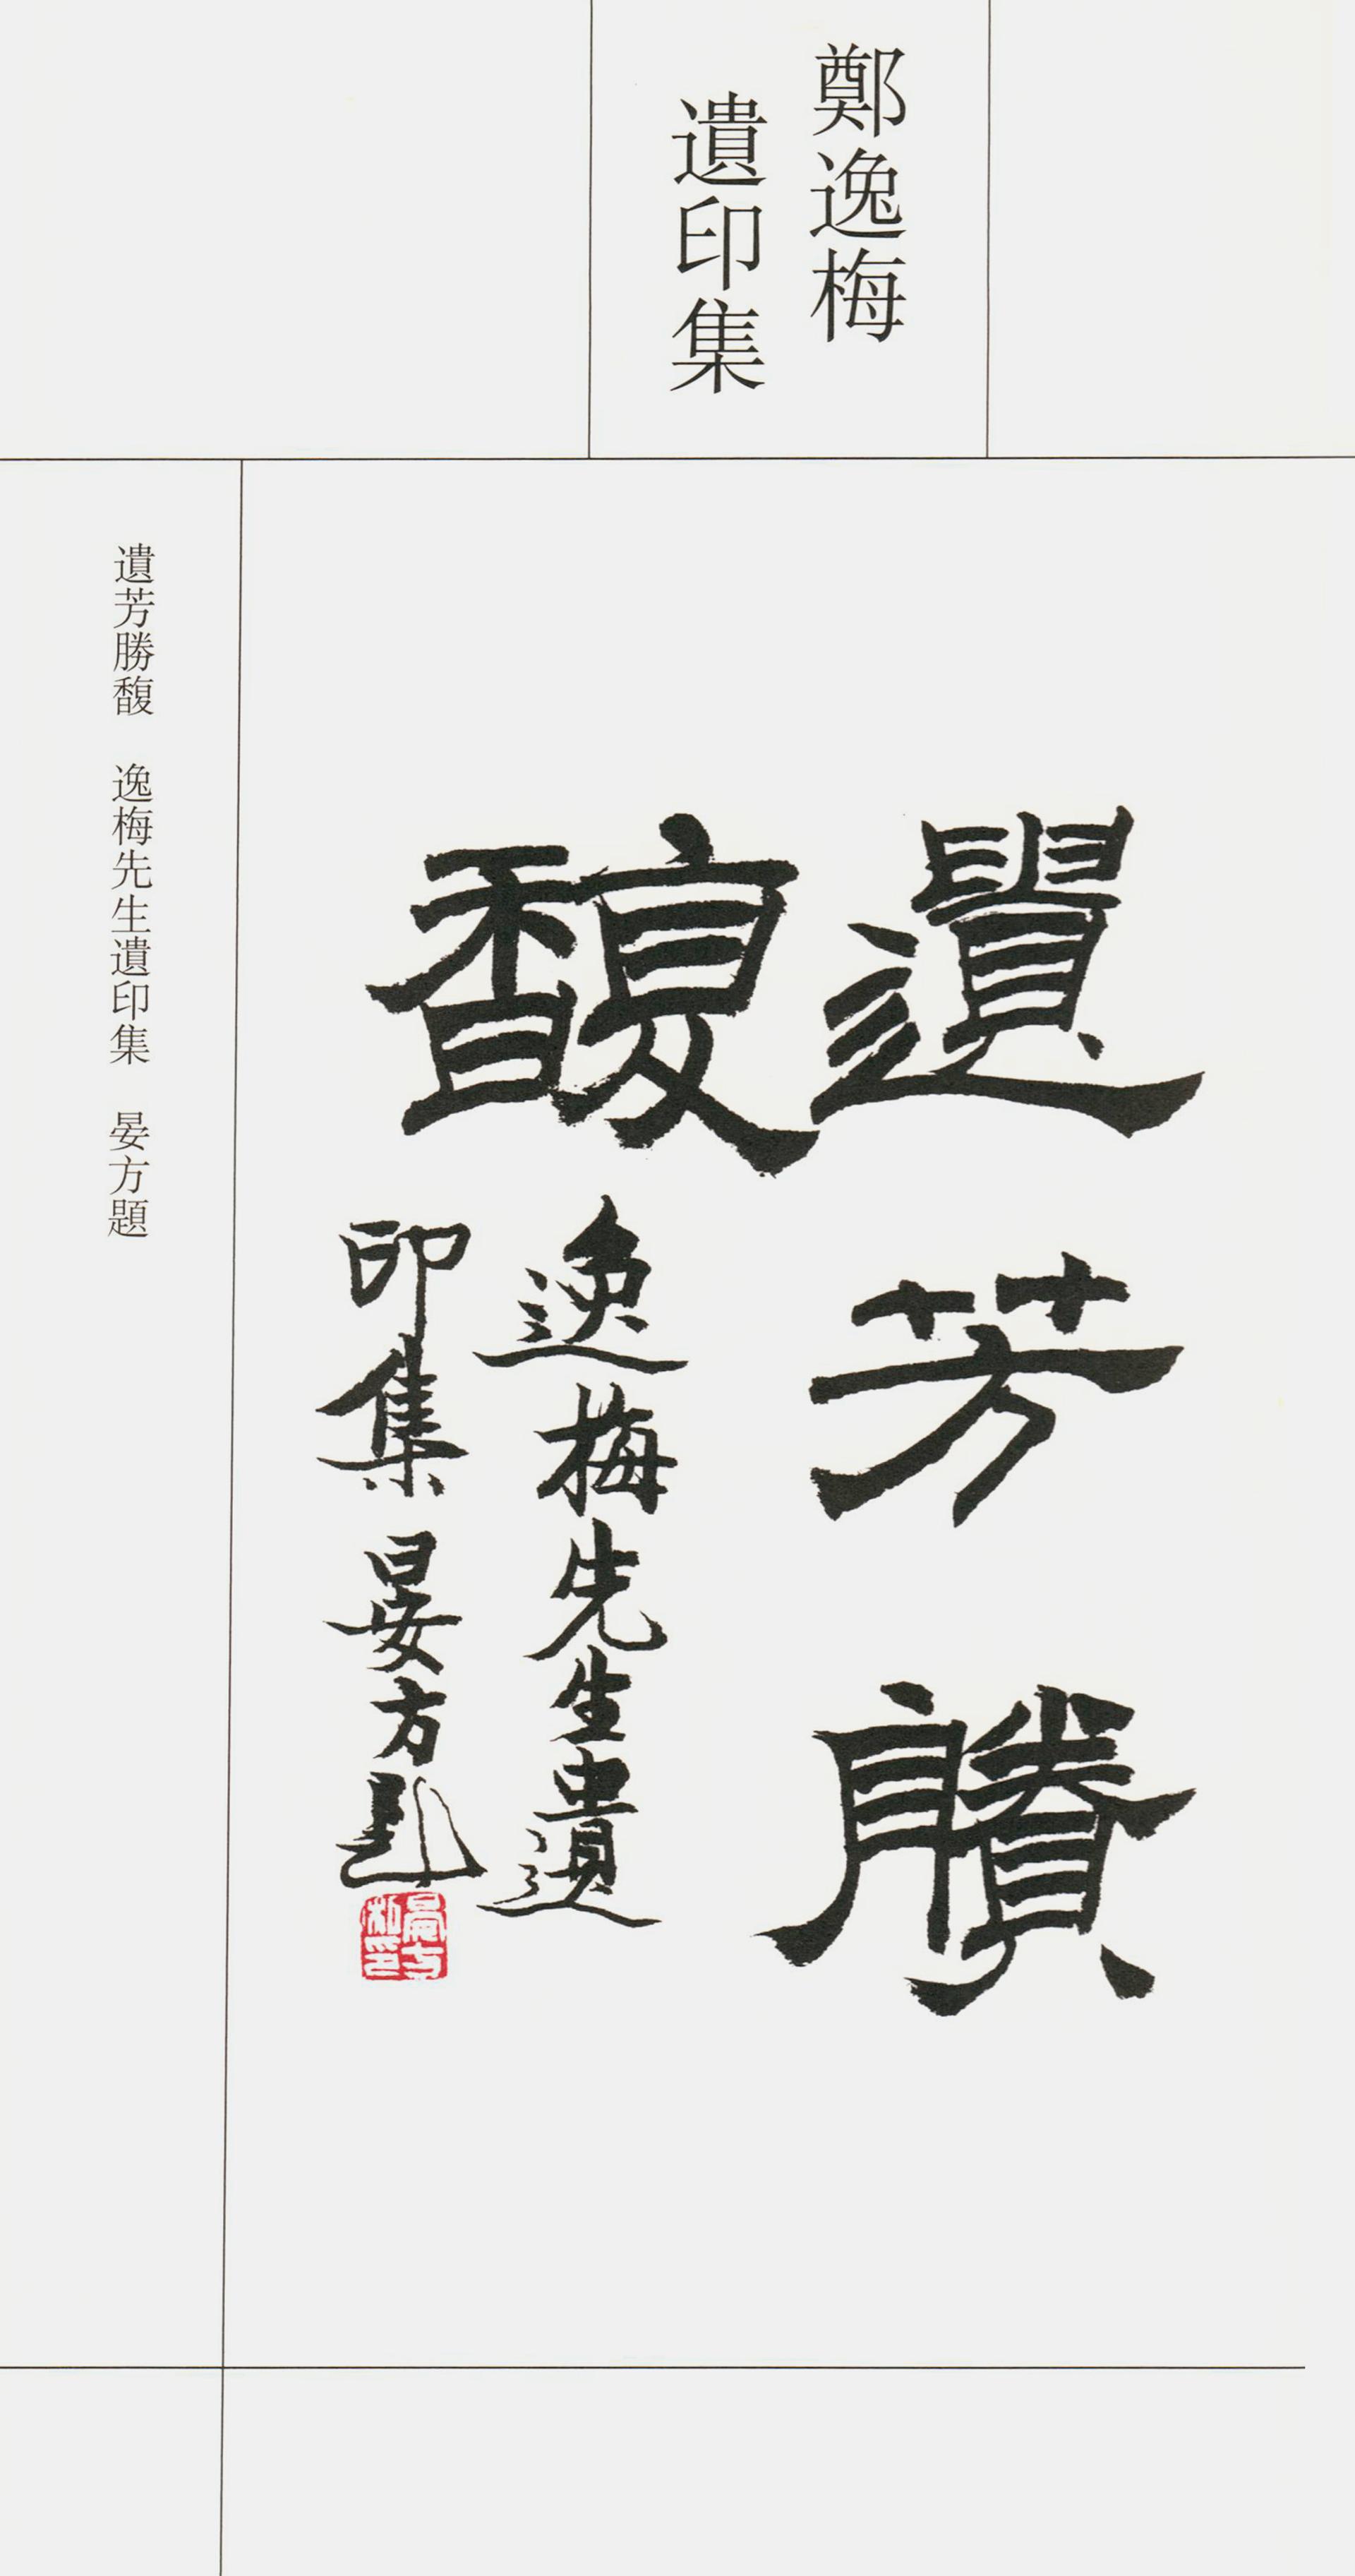 鄭逸梅
遺印集
遺芳賸
馥
逸梅先生遺
印集 晏方題
晏方私印
遺芳勝馥 逸梅先生遺印集 晏方題